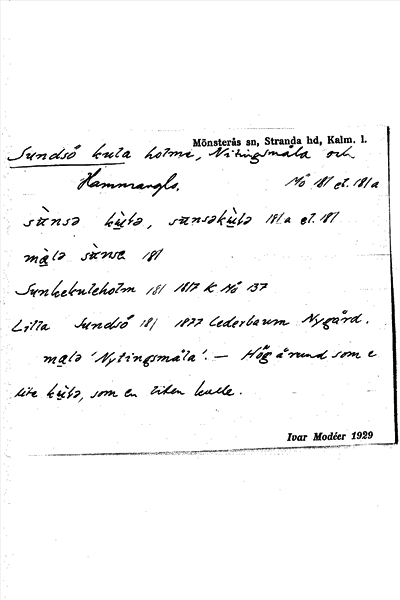 Mönsterås sn, Stranda hd, Kalm. l.
Sundsö kula holme, Nitingsmåla och
Hammarsgls. Mö 181 et. 181a
sɯ̀nsə kɯ̀tə, sɯnsəkɯ̀tə 181a et. 181
mạ̀lə sɯ̀nsə 181
Sunkekuleholm 181 1817 K Mö 137
Lilla Sundsö 181 1877 Cederbaum Nygård.
malə 'Nytingsmåla'. — Hög å rund som e
lite kɯ̀tə, som en liten kulle.
Ivar Modéer 1929